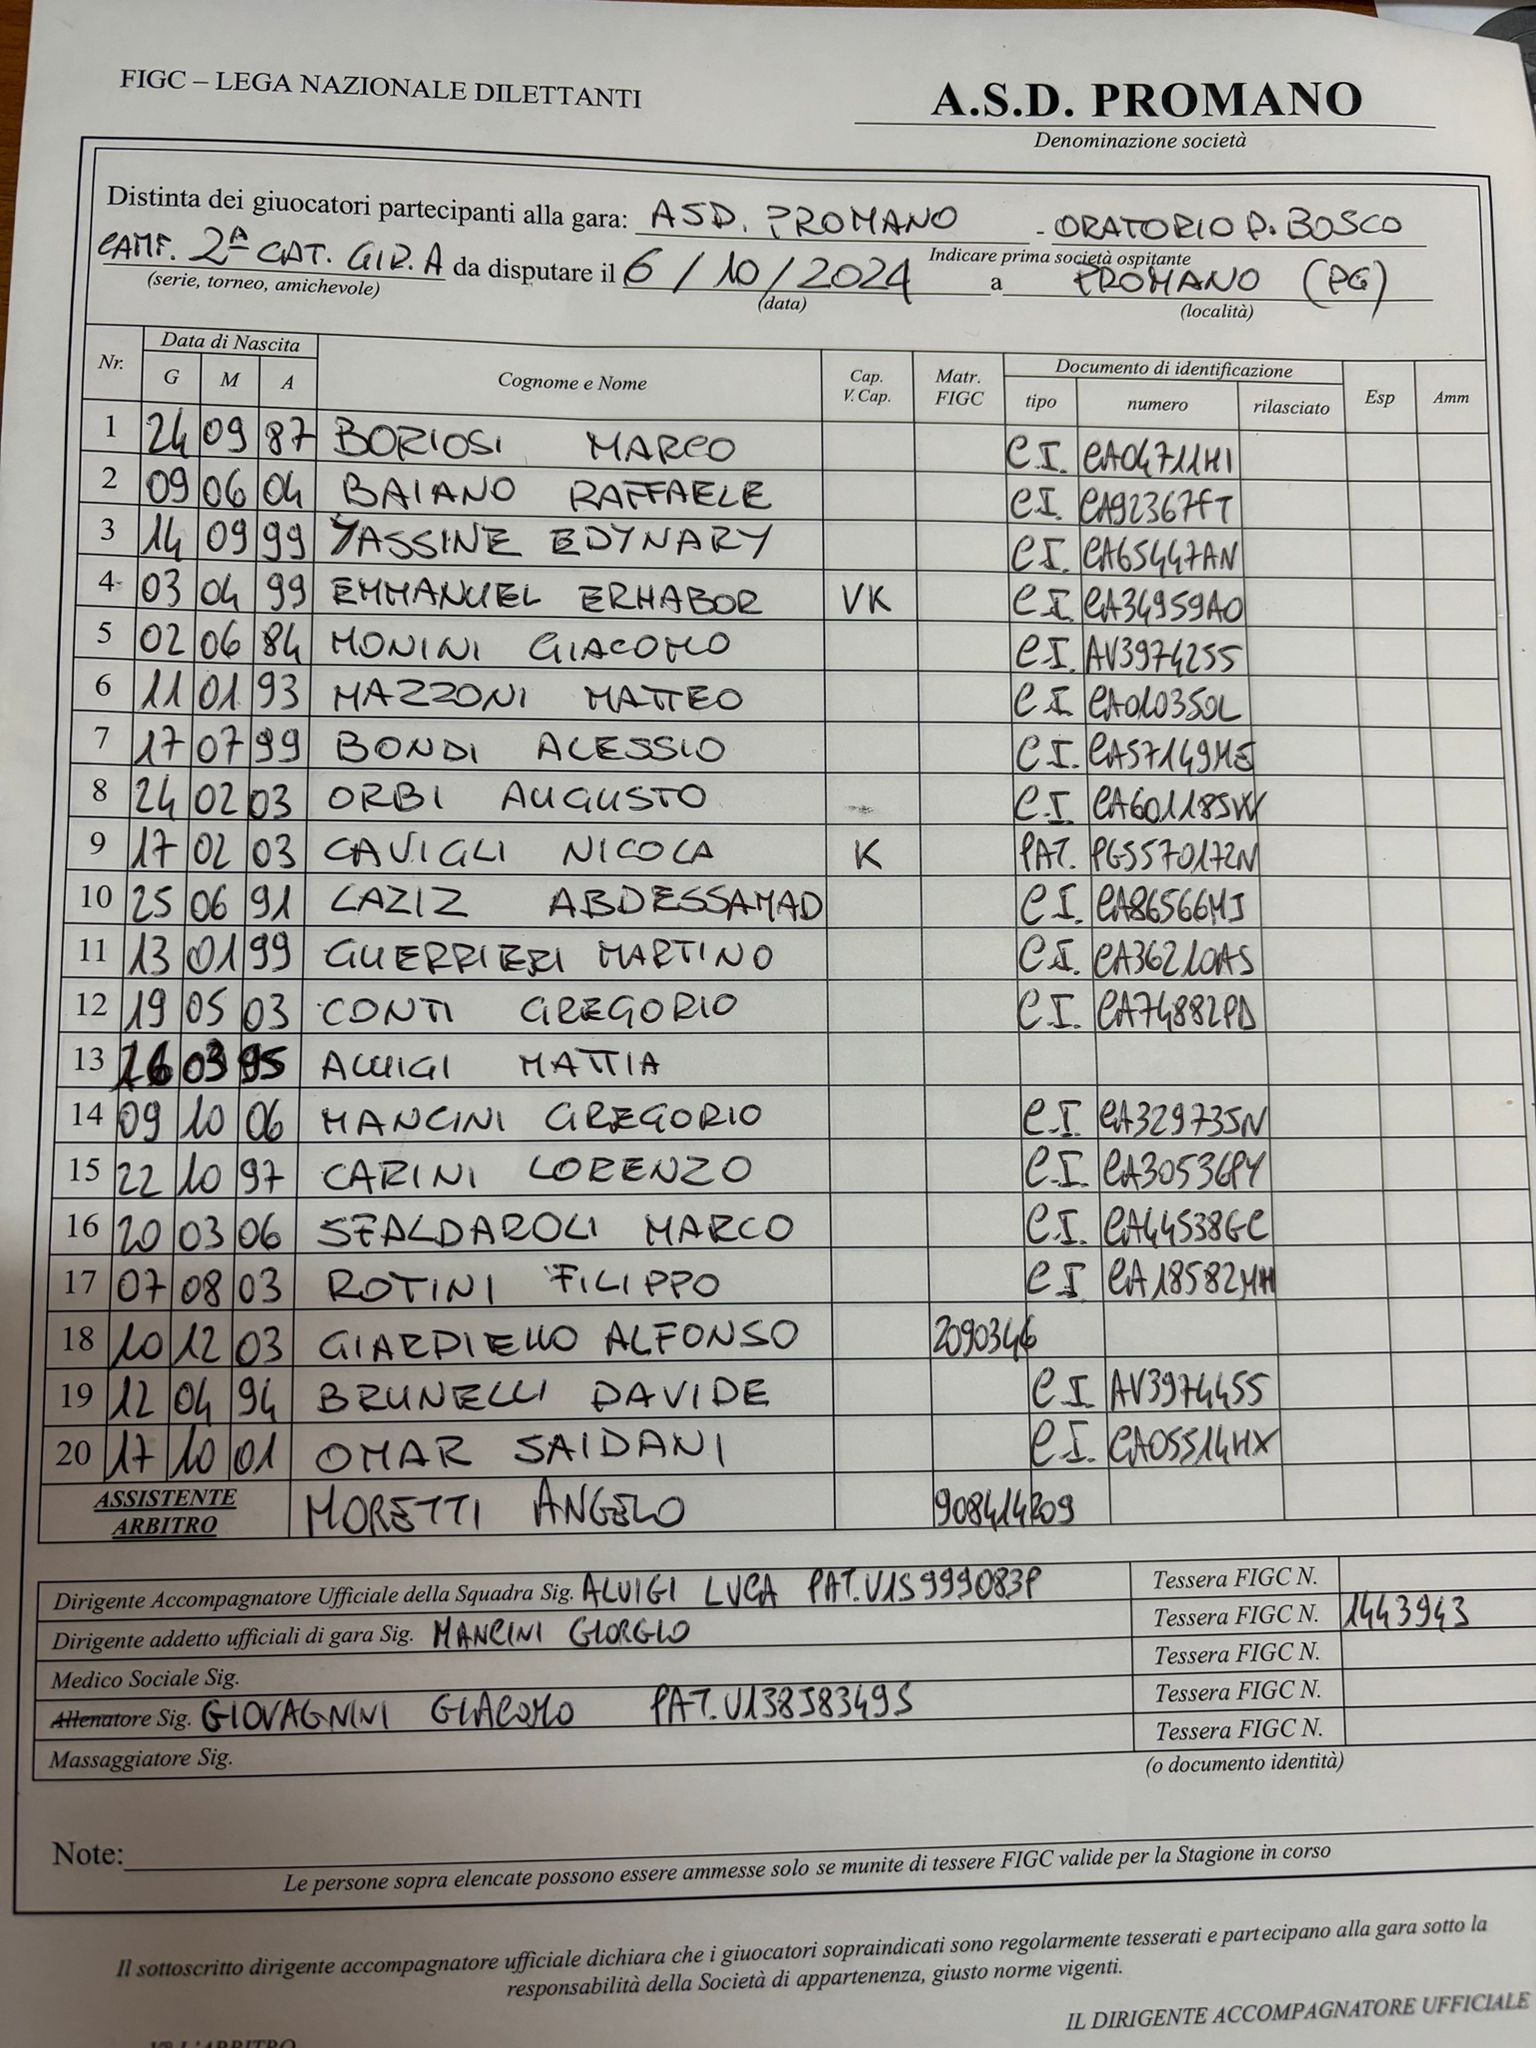 FIGC – LEGA NAZIONALE DILETTANTI
A.S.D. PROMANO
Denominazione società
Distinta dei giuocatori partecipanti alla gara: ASD. PROMANO - ORATORIO D. BOSCO
Indicare prima società ospitante
CAMP. 2ª CAT. GIR. A da disputare il 6/10/2024 a PROMANO (PG)
(serie, torneo, amichevole) (data) (località)
Nr. Data di Nascita Cognome e Nome Cap. V. Cap. Matr. FIGC Documento di identificazione Esp Amm
G M A tipo numero rilasciato
1 24 09 87 BORIOSI MARCO C.I. CA04711HI
2 09 06 04 BAIANO RAFFAELE C.I. CA92367FT
3 14 09 99 YASSINE EDYNARY C.I. CA65447AN
4 03 04 99 EMMANUEL ERHABOR VK C.I. CA34959AO
5 02 06 84 MONINI GIACOMO C.I. AV3974255
6 11 01 93 MAZZONI MATTEO C.I. CA01035OL
7 17 07 99 BONDI ALESSIO C.I. CA57149ME
8 24 02 03 ORBI AUGUSTO C.I. CA60118SW
9 17 02 03 CAVIGLI NICOLA K PAT. PG5570172N
10 25 06 91 LAZIZ ABDESSAMAD C.I. CA86566MJ
11 13 01 99 GUERRIERI MARTINO C.I. CA36210AS
12 19 05 03 CONTI GREGORIO C.I. CA74882PD
13 26 03 95 ALUIGI MATTIA
14 09 10 06 MANCINI GREGORIO C.I. CA32973SN
15 22 10 97 CARINI LORENZO C.I. CA30536PY
16 20 03 06 SFALDAROLI MARCO C.I. CA44538GC
17 07 08 03 ROTINI FILIPPO C.I. CA18582MH
18 10 12 03 GIARDIELLO ALFONSO 2090346
19 12 04 94 BRUNELLI DAVIDE C.I. AV3974455
20 17 10 01 OMAR SAIDANI C.I. CA05514HX
ASSISTENTE ARBITRO MORETTI ANGELO 908414209
Dirigente Accompagnatore Ufficiale della Squadra Sig. ALUIGI LUCA PAT. U15999083P Tessera FIGC N.
Dirigente addetto ufficiali di gara Sig. MANCINI GIORGIO Tessera FIGC N. 1443943
Medico Sociale Sig. Tessera FIGC N.
Allenatore Sig. GIOVAGNINI GIACOMO PAT. U138J8349S Tessera FIGC N.
Massaggiatore Sig. Tessera FIGC N.
(o documento identità)
Note:
Le persone sopra elencate possono essere ammesse solo se munite di tessere FIGC valide per la Stagione in corso
Il sottoscritto dirigente accompagnatore ufficiale dichiara che i giuocatori sopraindicati sono regolarmente tesserati e partecipano alla gara sotto la
responsabilità della Società di appartenenza, giusto norme vigenti.
IL DIRIGENTE ACCOMPAGNATORE UFFICIALE
L'ARBITRO